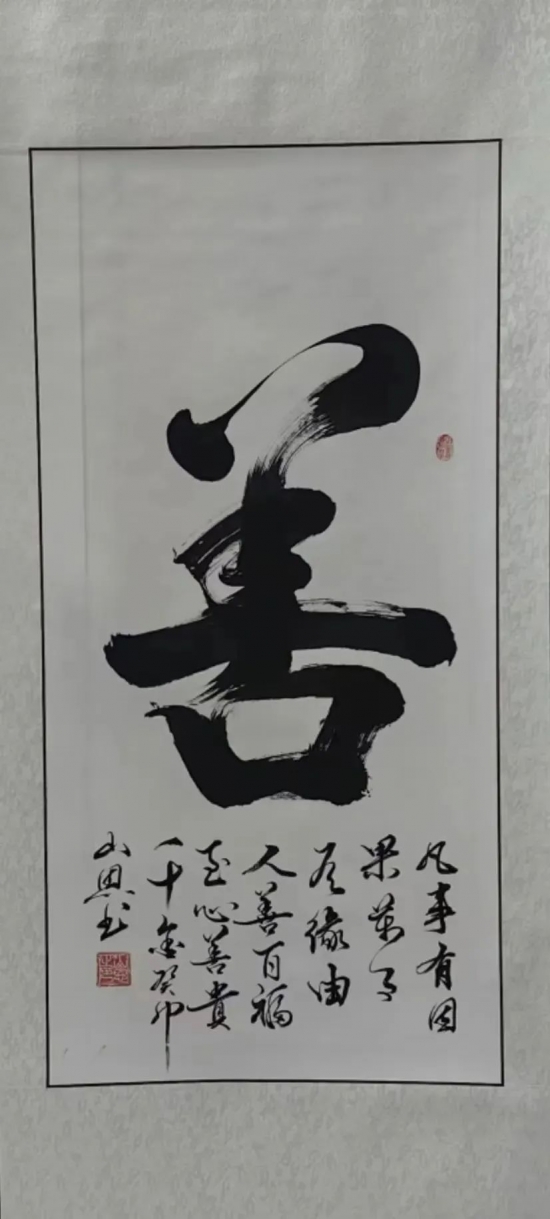 善
凡事有因
果萬事
有緣由
人善百福
至心善貴
千金癸卯
山恩书